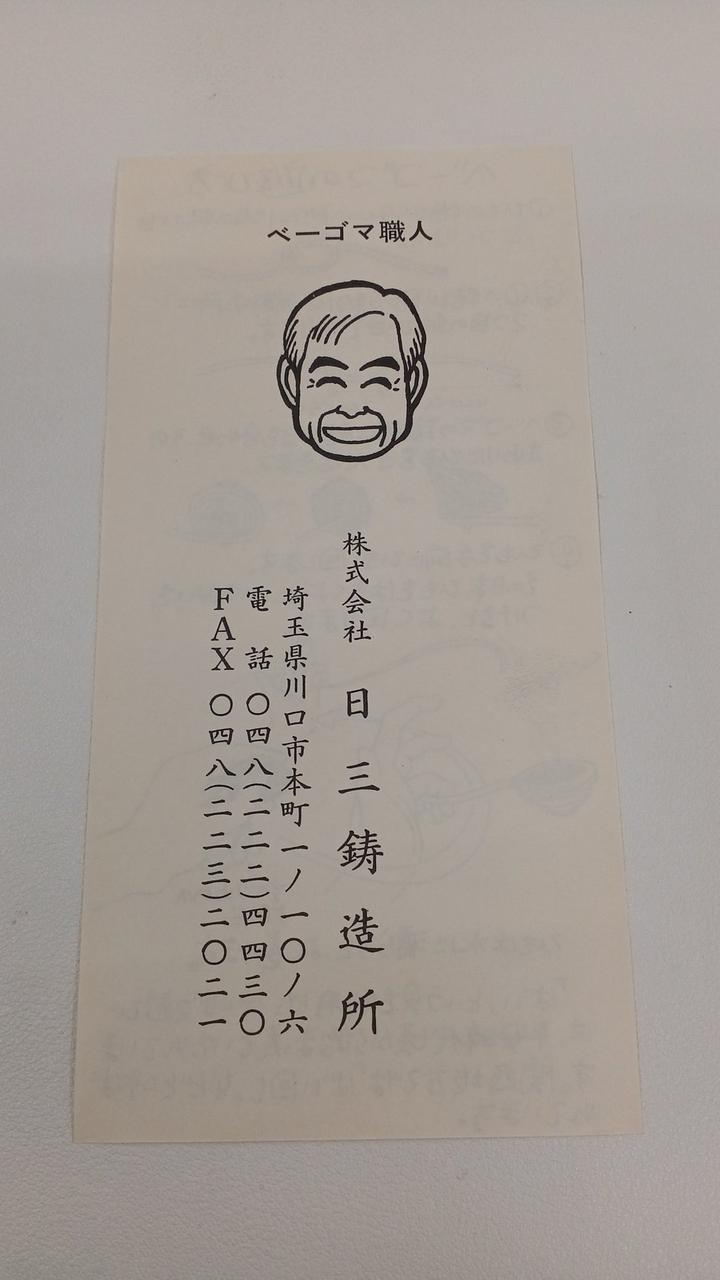 ベーゴマ職人
株式会社 日三鋳造所
埼玉県川口市本町一ノ一〇ノ六
電話 〇四八(二二二)四四三〇
FAX 〇四八(二二三)二〇二一